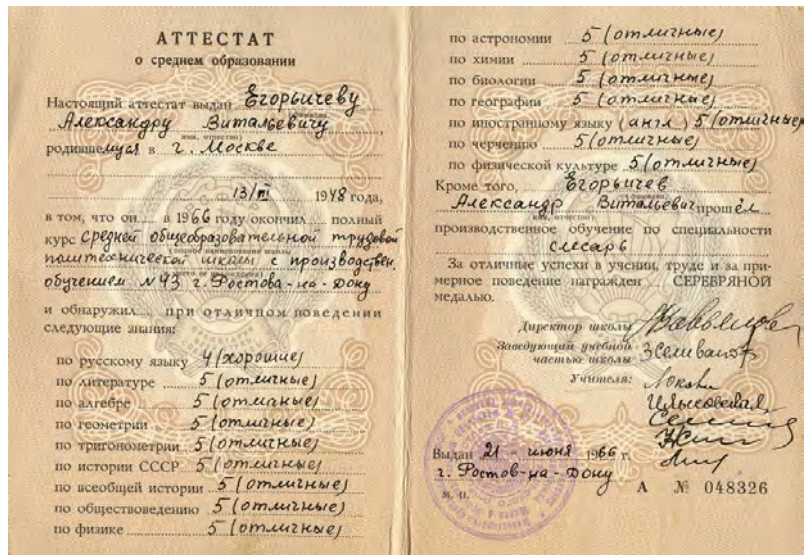 АТТЕСТАТ
о среднем образовании
Настоящий аттестат выдан Егорычеву
Александру Витальевичу,
имя, отчество)
родившемуся в г. Москве
13/III 1948 года,
в том, что он в 1966 году окончил полный
курс средней общеобразовательной трудовой
(полное наименование школы)
политехнической школы с производствен.
обучением №43 г. Ростова-на-Дону
и обнаружил при отличном поведении
следующие знания:
по русскому языку 4 (хорошие)
по литературе 5 (отличные)
по алгебре 5 (отличные)
по геометрии 5 (отличные)
по тригонометрии 5 (отличные)
по истории СССР 5 (отличные)
по всеобщей истории 5 (отличные)
по обществоведению 5 (отличные)
по физике 5 (отличные)
по астрономии 5 (отличные)
по химии 5 (отличные)
по биологии 5 (отличные)
по географии 5 (отличные)
по иностранному языку (англ.) 5 (отличные)
по черчению 5 (отличные)
по физической культуре 5 (отличные)
Кроме того, Егорычев
Александр Витальевич прошёл
имя, отчество)
производственное обучение по специальности
слесарь
За отличные успехи в учении, труде и за при-
мерное поведение награжден СЕРЕБРЯНОЙ
медалью.
Директор школы
Заведующий учебной
частью школы
Учителя:
Выдан 21 июня 1966 г.
г. Ростов-на-Дону
М. П.
А № 048326